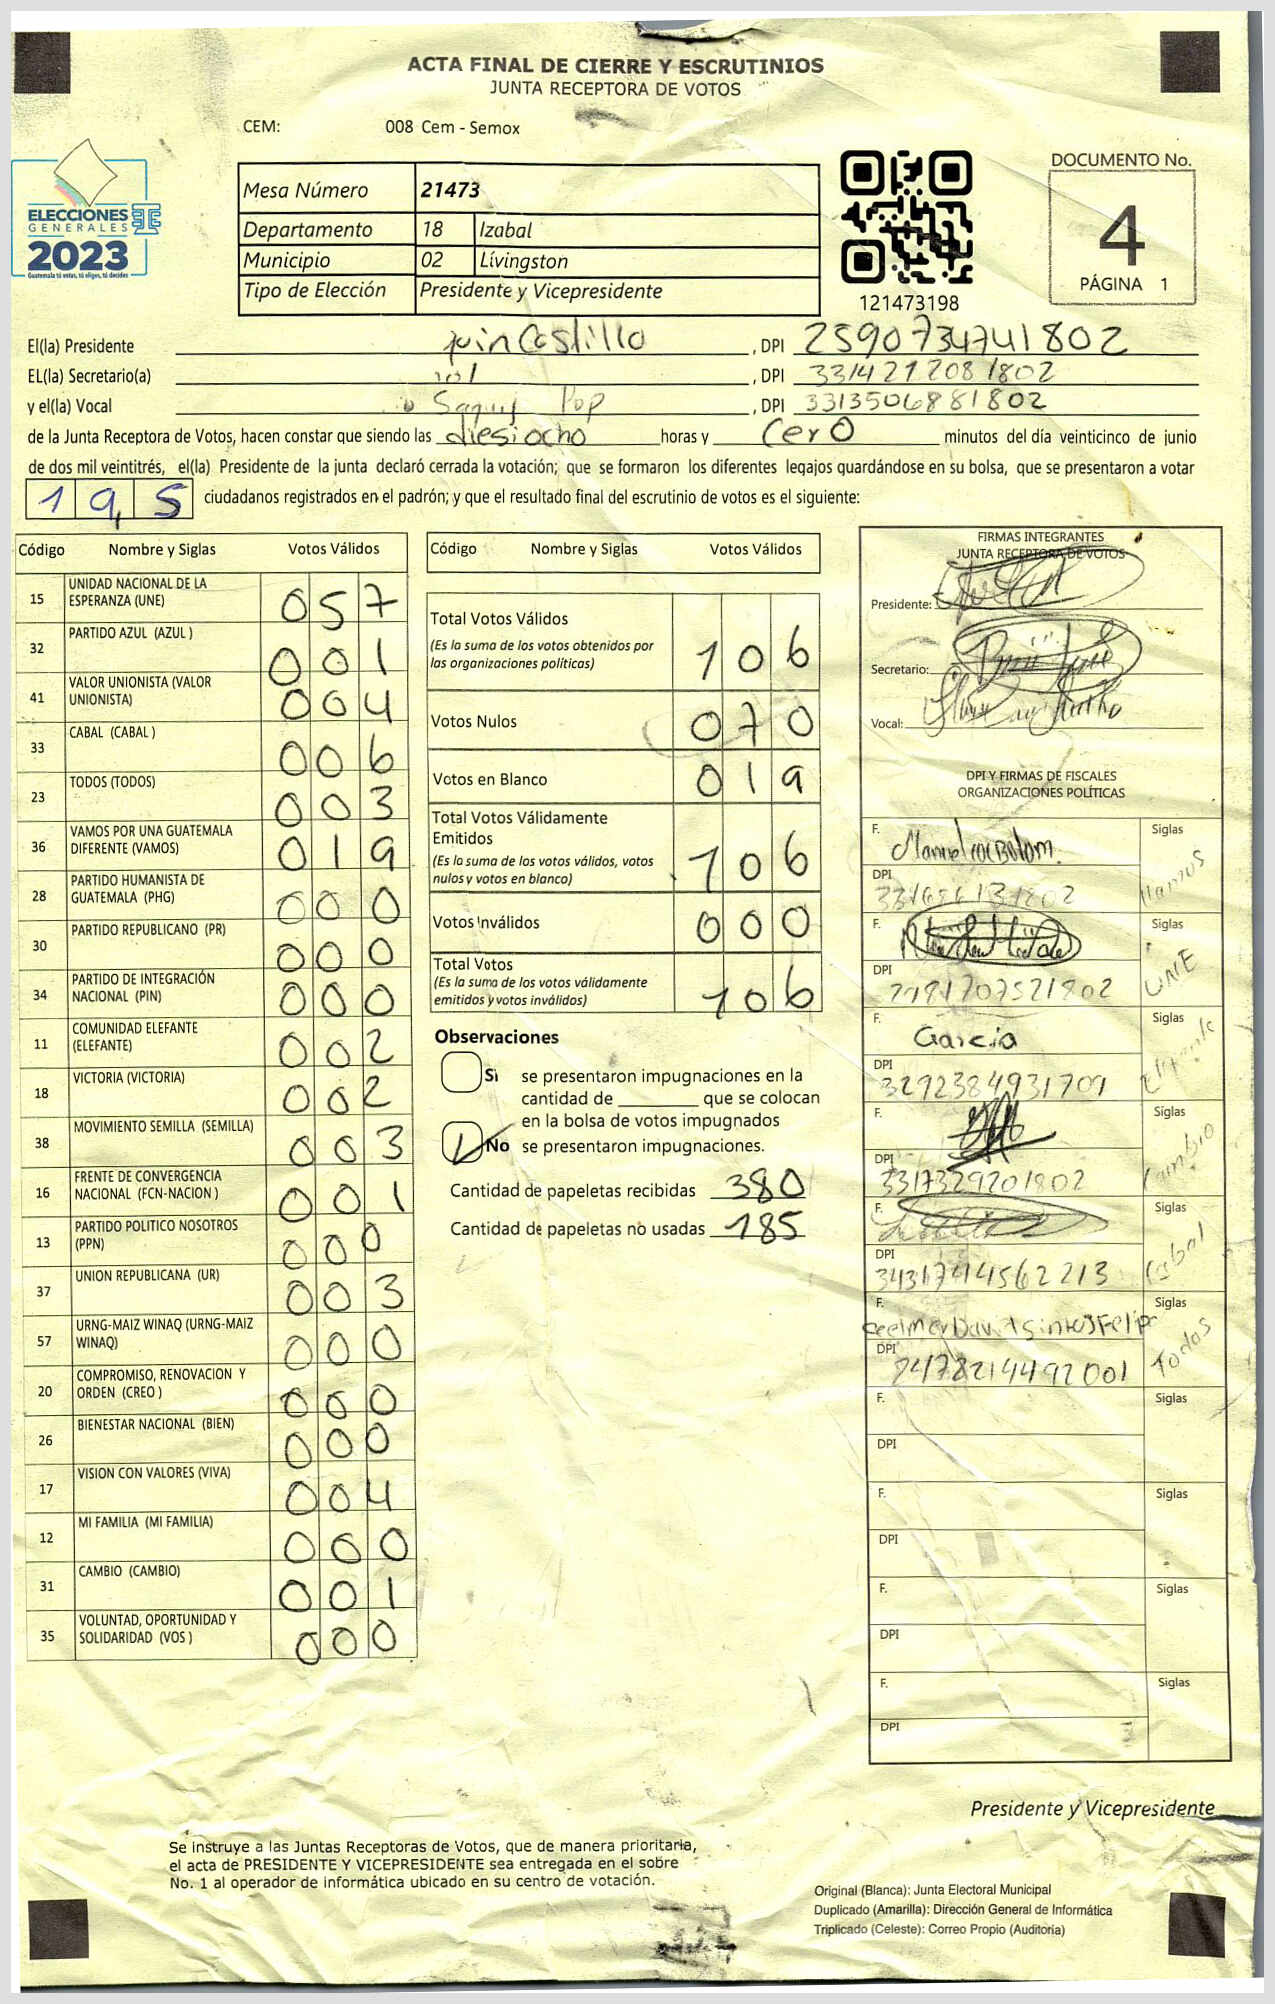 ACTA FINAL DE CIERRE Y ESCRUTINIOS
JUNTA RECEPTORA DE VOTOS
CEM: 008 Cem - Semox
ELECCIONES
GENERALES
2023
Guatemala tú votas, tú eliges, tú decides
Mesa Número 21473
Departamento 18 Izabal
Municipio 02 Livingston
Tipo de Elección Presidente y Vicepresidente
121473198
DOCUMENTO No.
4
PÁGINA 1
El(la) Presidente Castillo , DPI 2590734741802
EL(la) Secretario(a) , DPI 3314212081802
y el(la) Vocal Pop , DPI 3313506881802
de la Junta Receptora de Votos, hacen constar que siendo las diesiocho horas y cero minutos del día veinticinco de junio
de dos mil veintitrés, el(la) Presidente de la junta declaró cerrada la votación; que se formaron los diferentes legajos guardándose en su bolsa, que se presentaron a votar
19,5 ciudadanos registrados en el padrón; y que el resultado final del escrutinio de votos es el siguiente:
Código Nombre y Siglas Votos Válidos
15 UNIDAD NACIONAL DE LA ESPERANZA (UNE) 057
32 PARTIDO AZUL (AZUL ) 001
41 VALOR UNIONISTA (VALOR UNIONISTA) 004
33 CABAL (CABAL ) 006
23 TODOS (TODOS) 003
36 VAMOS POR UNA GUATEMALA DIFERENTE (VAMOS) 019
28 PARTIDO HUMANISTA DE GUATEMALA (PHG) 000
30 PARTIDO REPUBLICANO (PR) 000
34 PARTIDO DE INTEGRACIÓN NACIONAL (PIN) 000
11 COMUNIDAD ELEFANTE (ELEFANTE) 002
18 VICTORIA (VICTORIA) 002
38 MOVIMIENTO SEMILLA (SEMILLA) 003
16 FRENTE DE CONVERGENCIA NACIONAL (FCN-NACION ) 001
13 PARTIDO POLITICO NOSOTROS (PPN) 000
37 UNION REPUBLICANA (UR) 003
57 URNG-MAIZ WINAQ (URNG-MAIZ WINAQ) 000
20 COMPROMISO, RENOVACION Y ORDEN (CREO ) 000
26 BIENESTAR NACIONAL (BIEN) 000
17 VISION CON VALORES (VIVA) 004
12 MI FAMILIA (MI FAMILIA) 000
31 CAMBIO (CAMBIO) 001
35 VOLUNTAD, OPORTUNIDAD Y SOLIDARIDAD (VOS ) 000
Código Nombre y Siglas Votos Válidos
Total Votos Válidos 106
(Es la suma de los votos obtenidos por
las organizaciones políticas)
Votos Nulos 070
Votos en Blanco 019
Total Votos Válidamente
Emitidos 106
(Es la suma de los votos válidos, votos
nulos y votos en blanco)
Votos Inválidos 000
Total Votos 106
(Es la suma de los votos válidamente
emitidos y votos inválidos)
Observaciones
Si se presentaron impugnaciones en la
cantidad de ________ que se colocan
en la bolsa de votos impugnados
No se presentaron impugnaciones.
Cantidad de papeletas recibidas 380
Cantidad de papeletas no usadas 185
FIRMAS INTEGRANTES
JUNTA RECEPTORA DE VOTOS
Presidente:
Secretario:
Vocal:
DPI Y FIRMAS DE FISCALES
ORGANIZACIONES POLÍTICAS
F. Manuel Siglas
DPI
F. Siglas UNE
DPI
F. Garcia Siglas
DPI 3292384931709
F. Siglas
DPI 3317329201802
F. Siglas
DPI
F. Siglas Todos
DPI
F. Siglas
DPI
F. Siglas
DPI
F. Siglas
DPI
F. Siglas
DPI
Presidente y Vicepresidente
Se instruye a las Juntas Receptoras de Votos, que de manera prioritaria,
el acta de PRESIDENTE Y VICEPRESIDENTE sea entregada en el sobre
No. 1 al operador de informática ubicado en su centro de votación.
Original (Blanca): Junta Electoral Municipal
Duplicado (Amarilla): Dirección General de Informática
Triplicado (Celeste): Correo Propio (Auditoria)